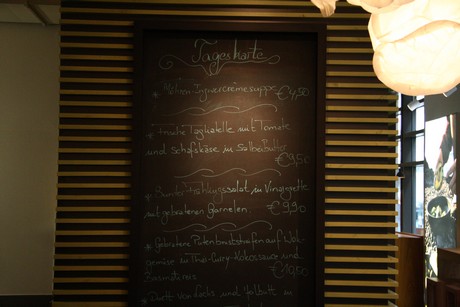 Tageskarte
* Möhren-Ingwercremesuppe €4,50
* frische Tagliatelle mit Tomate
und Schafskäse in Salbeibutter
€9,50
* Bunter Frühlingssalat in Vinaigrette
mit gebratenen Garnelen. €9,90
* Gebratene Putenbruststreifen auf Wok-
gemüse in Thai-Curry-Kokossauce und
Basmatireis €10,50
Lachs und Heilbutt